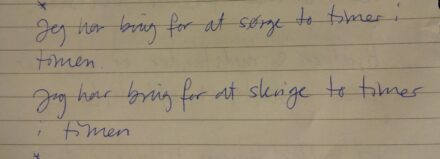 * Jeg har brug for at sørge to timer i
timen.
Jeg har brug for at skrige to timer
i timen
*